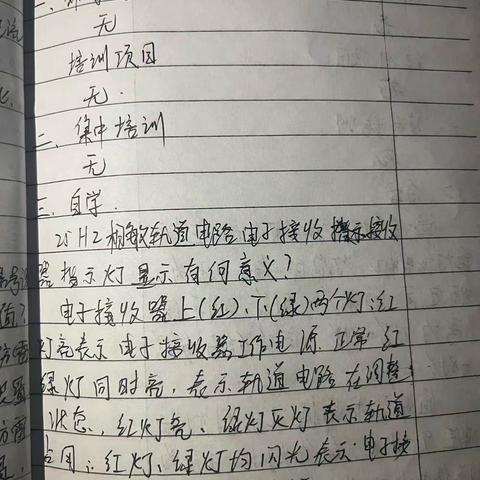 无
培训项目
无.
二、集中培训
无
三、自学.
25HZ相敏轨道电路电子接收
器指示灯显示有何意义?
电子接收器上(红)、下(绿)两个灯:红
灯亮表示电子接收器工作电源正常 红
绿灯同时亮,表示轨道电路在调整
状态,红灯亮、绿灯灭灯表示轨道
占用;红灯、绿灯均闪光表示电子接